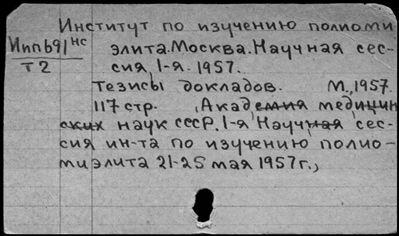 Институт по изучению полиоми
Ипп691нс элита. Москва. Научная сес-
Т2 сия, 1-я. 1957.
Тезисы докладов. М., 1957.
117 стр. (Академия медицин
ских наук СССР. 1-я Научная сес-
сия ин-та по изучению полио-
миэлита 21-25 мая 1957г.,